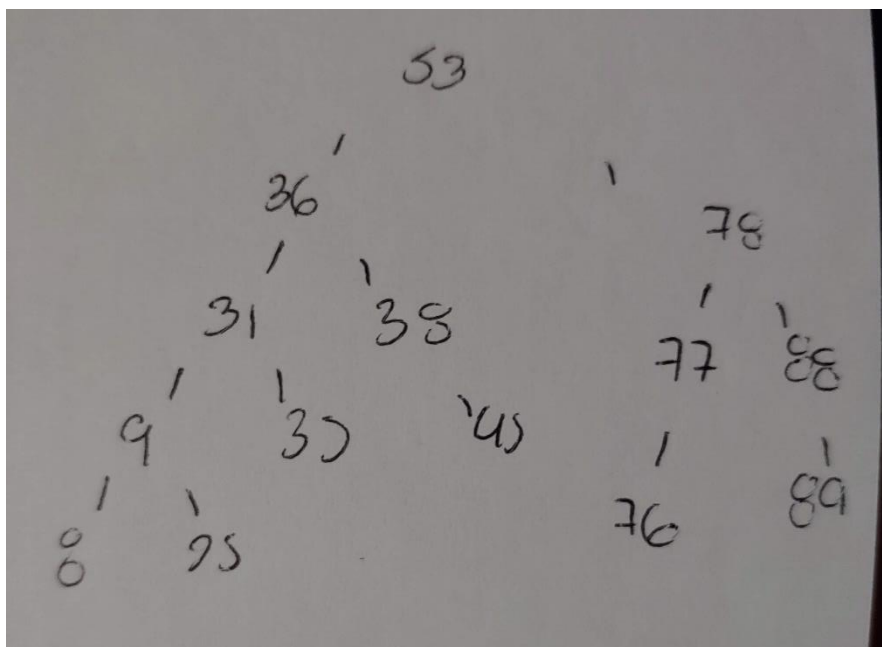 53
36
78
31 38 77 88
9 45
76 89
8 25